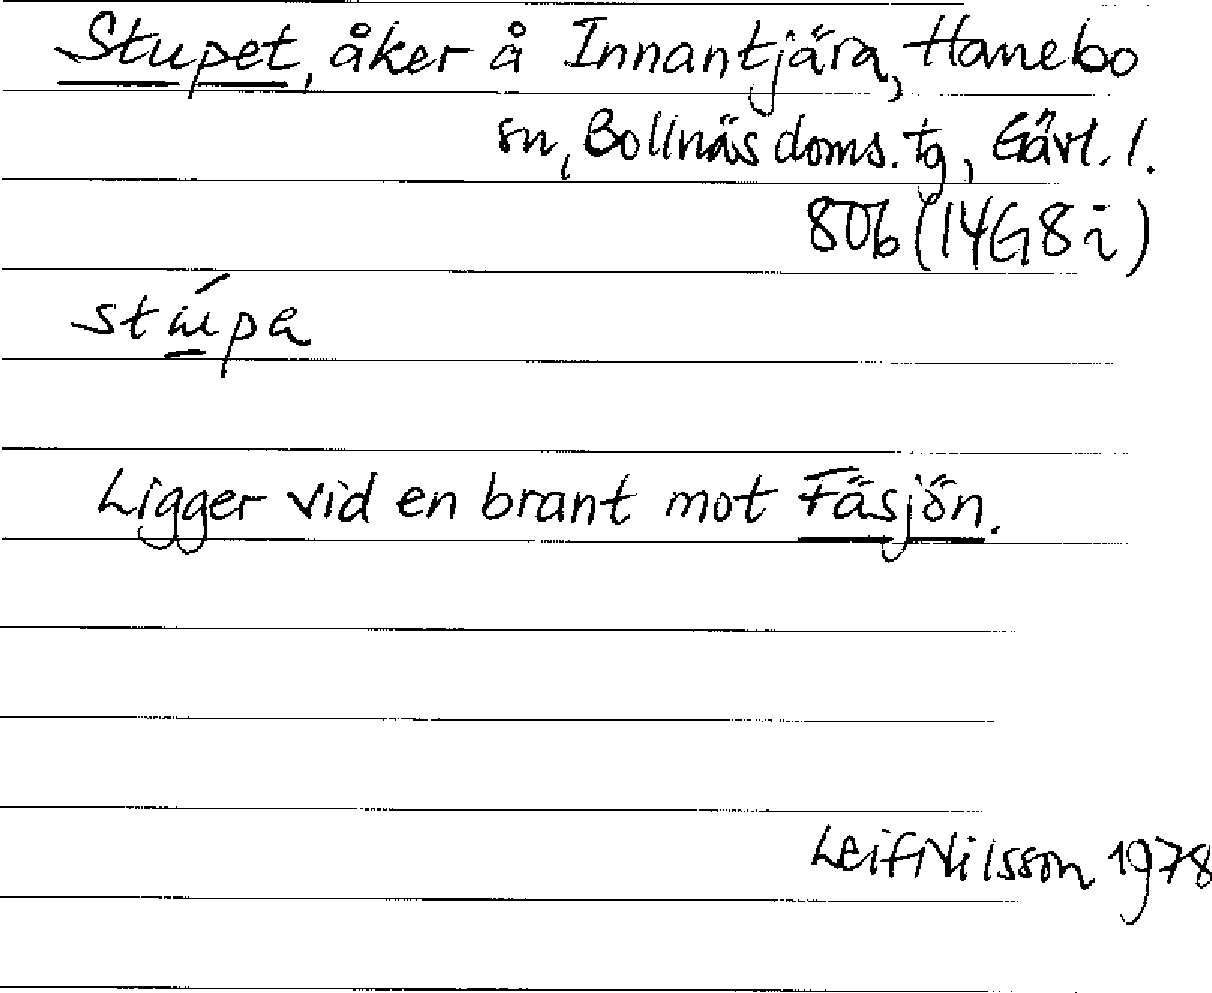 Stupet, åker å Innantjära, Hanebo
sn, Bollnäs doms. tg, Gävl. l.
80b (14G8i)
stúpa
Ligger vid en brant mot Fäsjön.
Leif Nilsson 1978